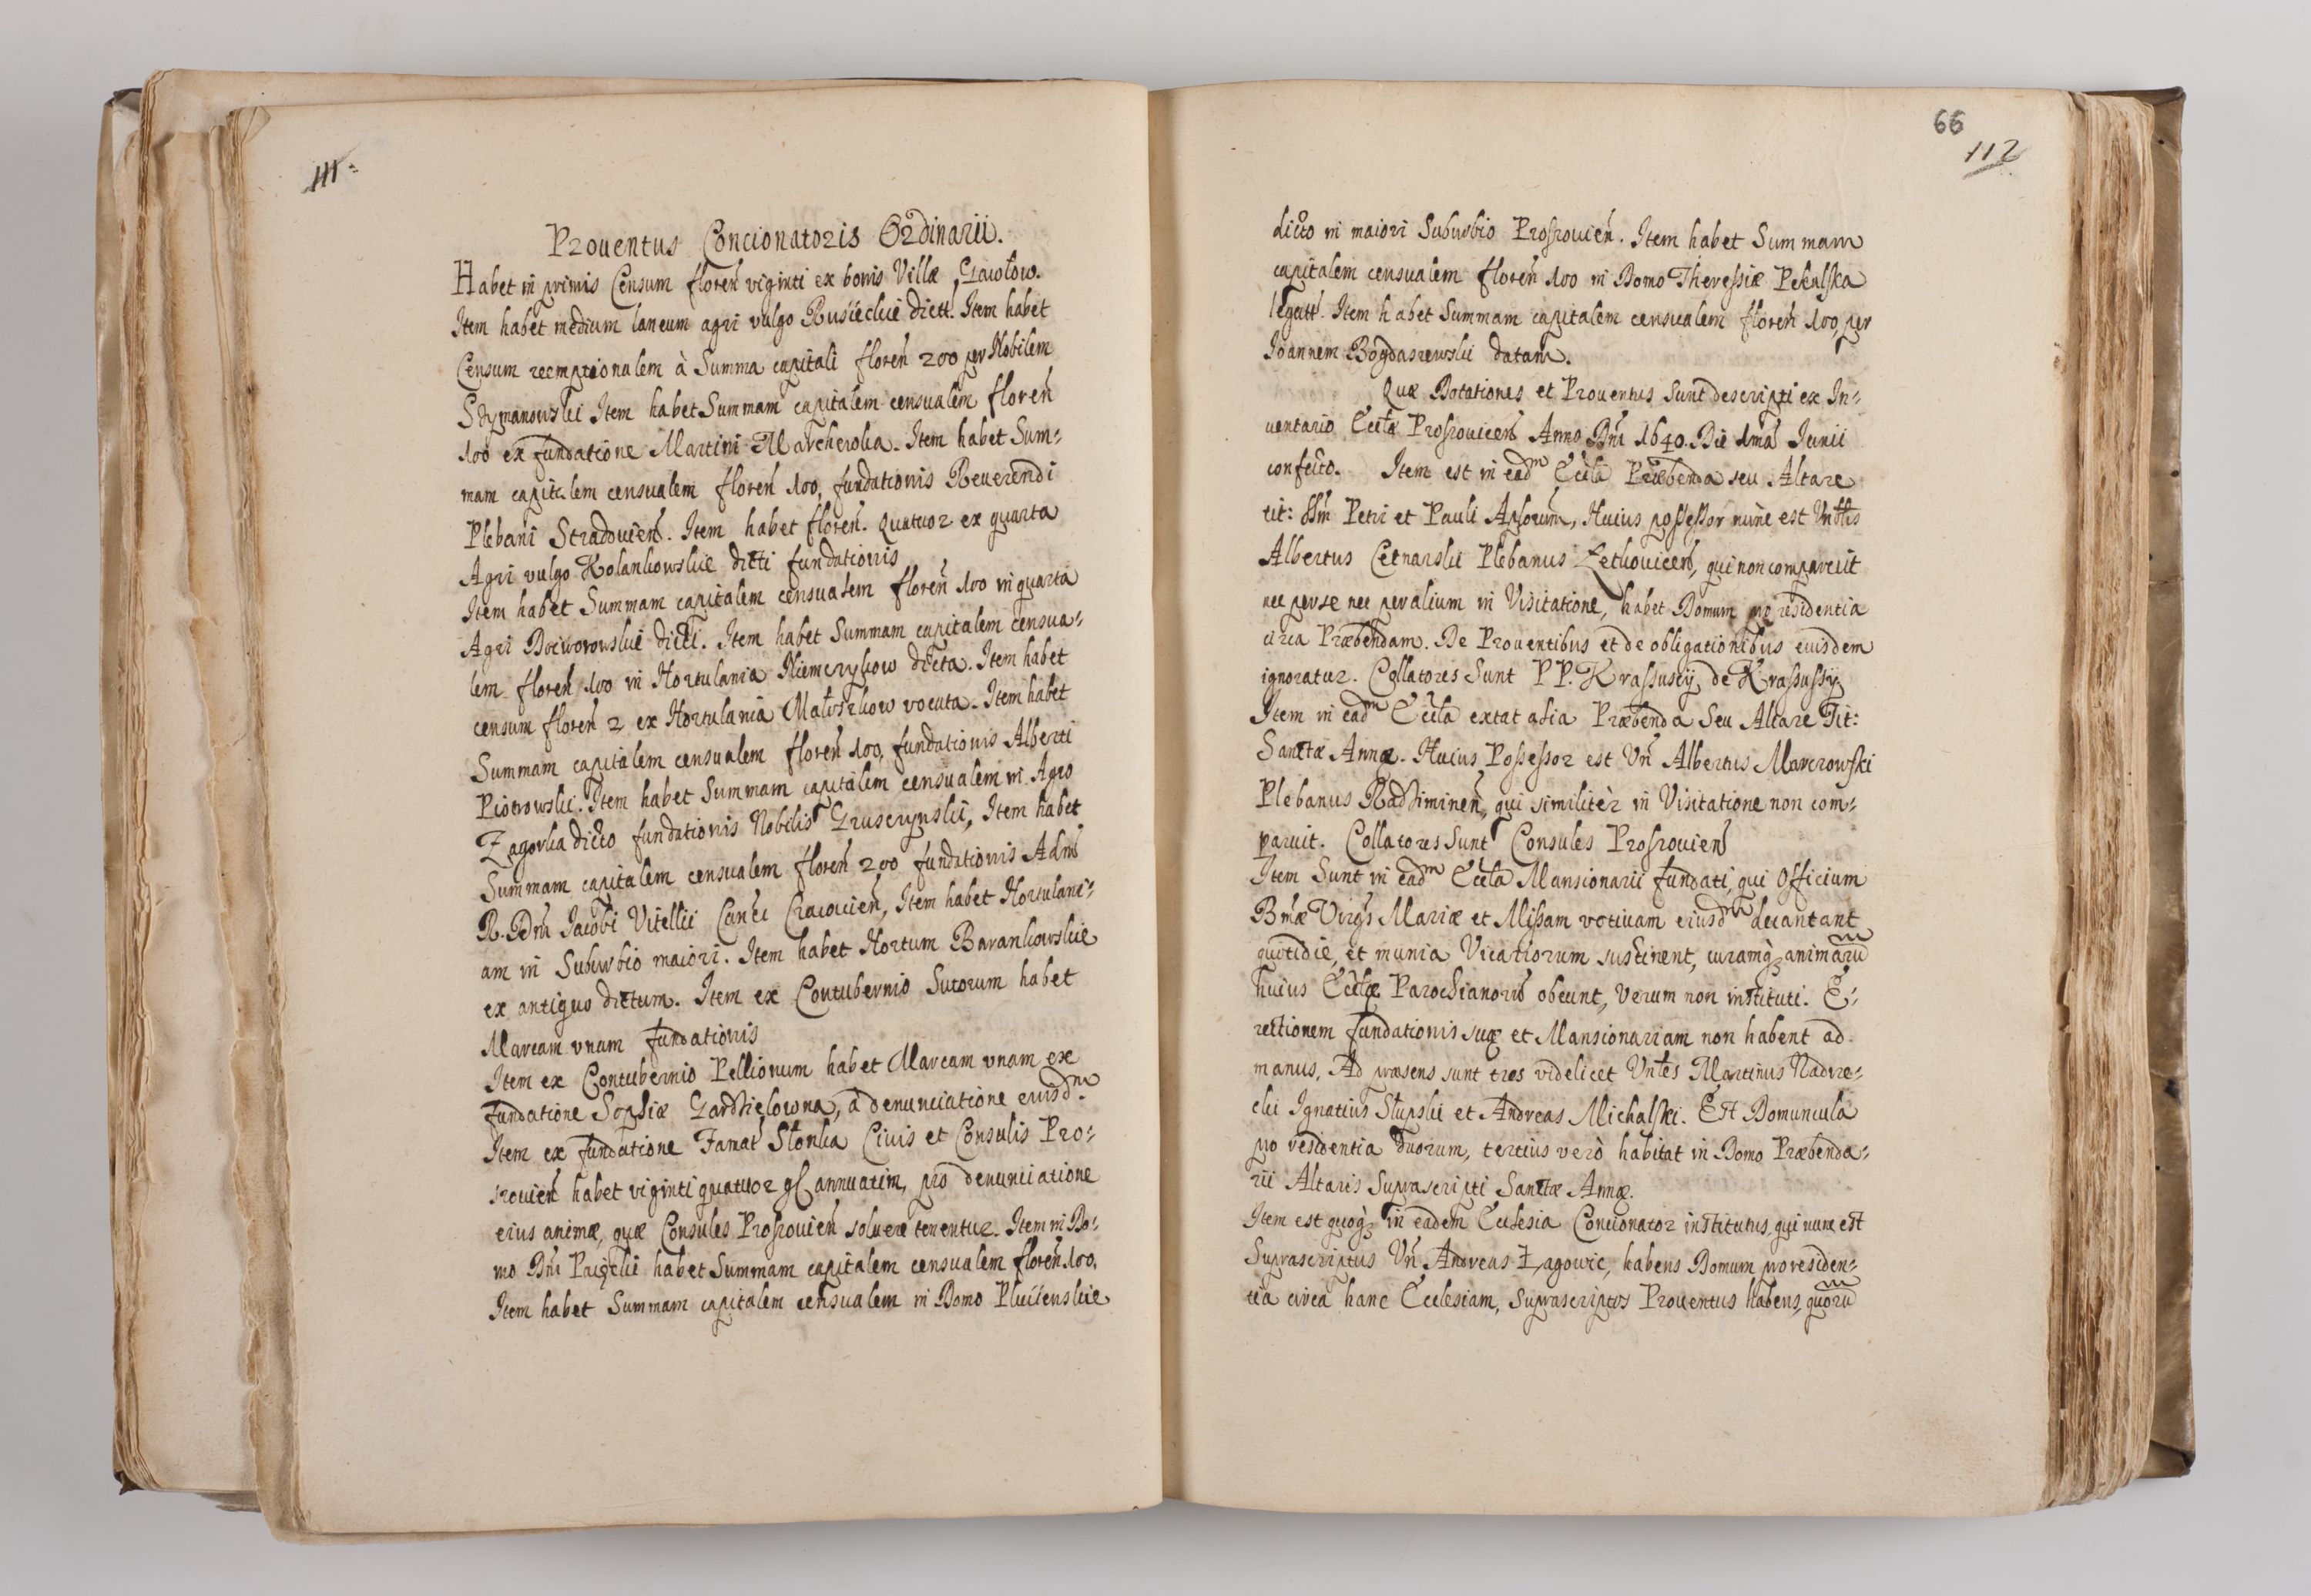 111
Prouentus Concionatoris Ordinarii.
Habet in primis Censum floreń viginti ex bonis Villæ Gawłow.
Item habet medium laneum agri vulgo Rusiećkie dictt. Item habet
Censum reemptionalem à Summa capitali floreń 200 per Nobilem
Szymanowski Item habet Summam capitalem censualem floreń
100 ex fundatione Martini Marcherolia. Item habet Sum⸗
mam capitalem censualem floreń 100, fundationis Reuerendi
Plebani Stradouień. Item habet floreń. quatuor ex quarta
Agri vulgo Kolankowskie dicti fundationis
Item habet Summam capitalem censualem floreń 100 in quarta
Agri Boiworowskie dicti. Item habet Summam capitalem censua⸗
lem floreń 100 in Hortulania Niemczykow dicta. Item habet
censum floreń 2 ex Hortulania Matuszkow vocata. Item habet
Summam capitalem censualem floreń 100, fundationis Alberti
Piotrowski. Item habet Summam capitalem censualem in Agro
Zagorka dicto fundationis Nobilis Gruszczynski, Item habet
Summam capitalem censualem floreń 200 fundationis Adm̃
R. Dn̄i Iacobi Vitellii Canci Cracouień, Item habet Hortulani⸗
am in Suburbio maiori. Item habet Hortum Barankowskie
ex antiquo dictum. Item ex Contubernio Sutorum habet
Marcam vnam fundationis
Item ex Contubernio Pellionum habet Marcam vnam ex
fundatione Sophiæ Gardzielowna, à denunciatione eiusdm.
Item ex fundatione Famat Słonka Ciuis et Consulis Pro⸗
szouień habet viginti quatuor gſ annuatim, pro denunciatione
eius animæ, quæ Consules Proszouień soluere tenentur. Item in Do⸗
mo Dn̄i Paięcki habet Summam capitalem censualem floreń 100.
Item habet Summam capitalem censualem in Domo Pluciienskie
66
112
dicto in maiori Suburbio Proszouień. Item habet Summam
capitalem censualem floreń 100 in Domo Theressiæ Pekalska
legatt. Item habet Summam capitalem censualem floreń 100, per
Ioannem Bogdaszewski datam.
Quæ Dotationes et Prouentus Sunt descripti ex In⸗
uentario Eccłæ Proszouiceń Anno Dn̄i 1640. Die 1ma Iunii
confecto. Item est in eadm Eccła Præbenda seu Altare
tit: SSm̃ Petri et Pauli Apſorum, Huius possessor nunc est Vnbłis
Albertus Cetnarski Plebanus Łetkouiceń, qui non comparuit
nec per se nec per alium in Visitatione, habet Domum pro residentia
circa Præbendam. De Prouentibus et de obligationibus eiusdem
ignoratur. Collatores Sunt PP. Krassuscy de Krassussy
Item in eadm Eccła extat alia Præbenda Seu Altare Tit:
Sanctæ Annæ. Huius Possessor est Vń Albertus Marcrowski
Plebanus Radziminen, qui similitèr in Visitatione non com⸗
paruit. Collatores Sunt Consules Proszouień
Item Sunt in eadm Eccła Mansionarii fundati, qui Officium
Bm̃æ Virgs Mariæ et Missam votiuam eiusdm decantant
quotidie, et munia Vicariorum sustinent, curamq; animarum
huius Eccłæ Parochianorum obeunt, verum non instituti. E⸗
rectionem fundationis suæ et Mansionariam non habent ad
manus, Ad præsens sunt tres videlicet Vnłes Martinus Nadrze⸗
cki Ignatius Słupski et Andreas Michalski. Est Domuncula
pro residentia duorum, tertius verò habitat in Domo Præbenda⸗
rii Altaris Suprascripti Sanctæ Annæ.
Item est quoq; in eadem Ecclesia Concionator institutus, qui nunc est
Suprascriptus Vń Andreas Zagowic, habens Domum pro residen⸗
tia circa hanc Ecclesiam, Suprascriptos Prouentus habens, quorum